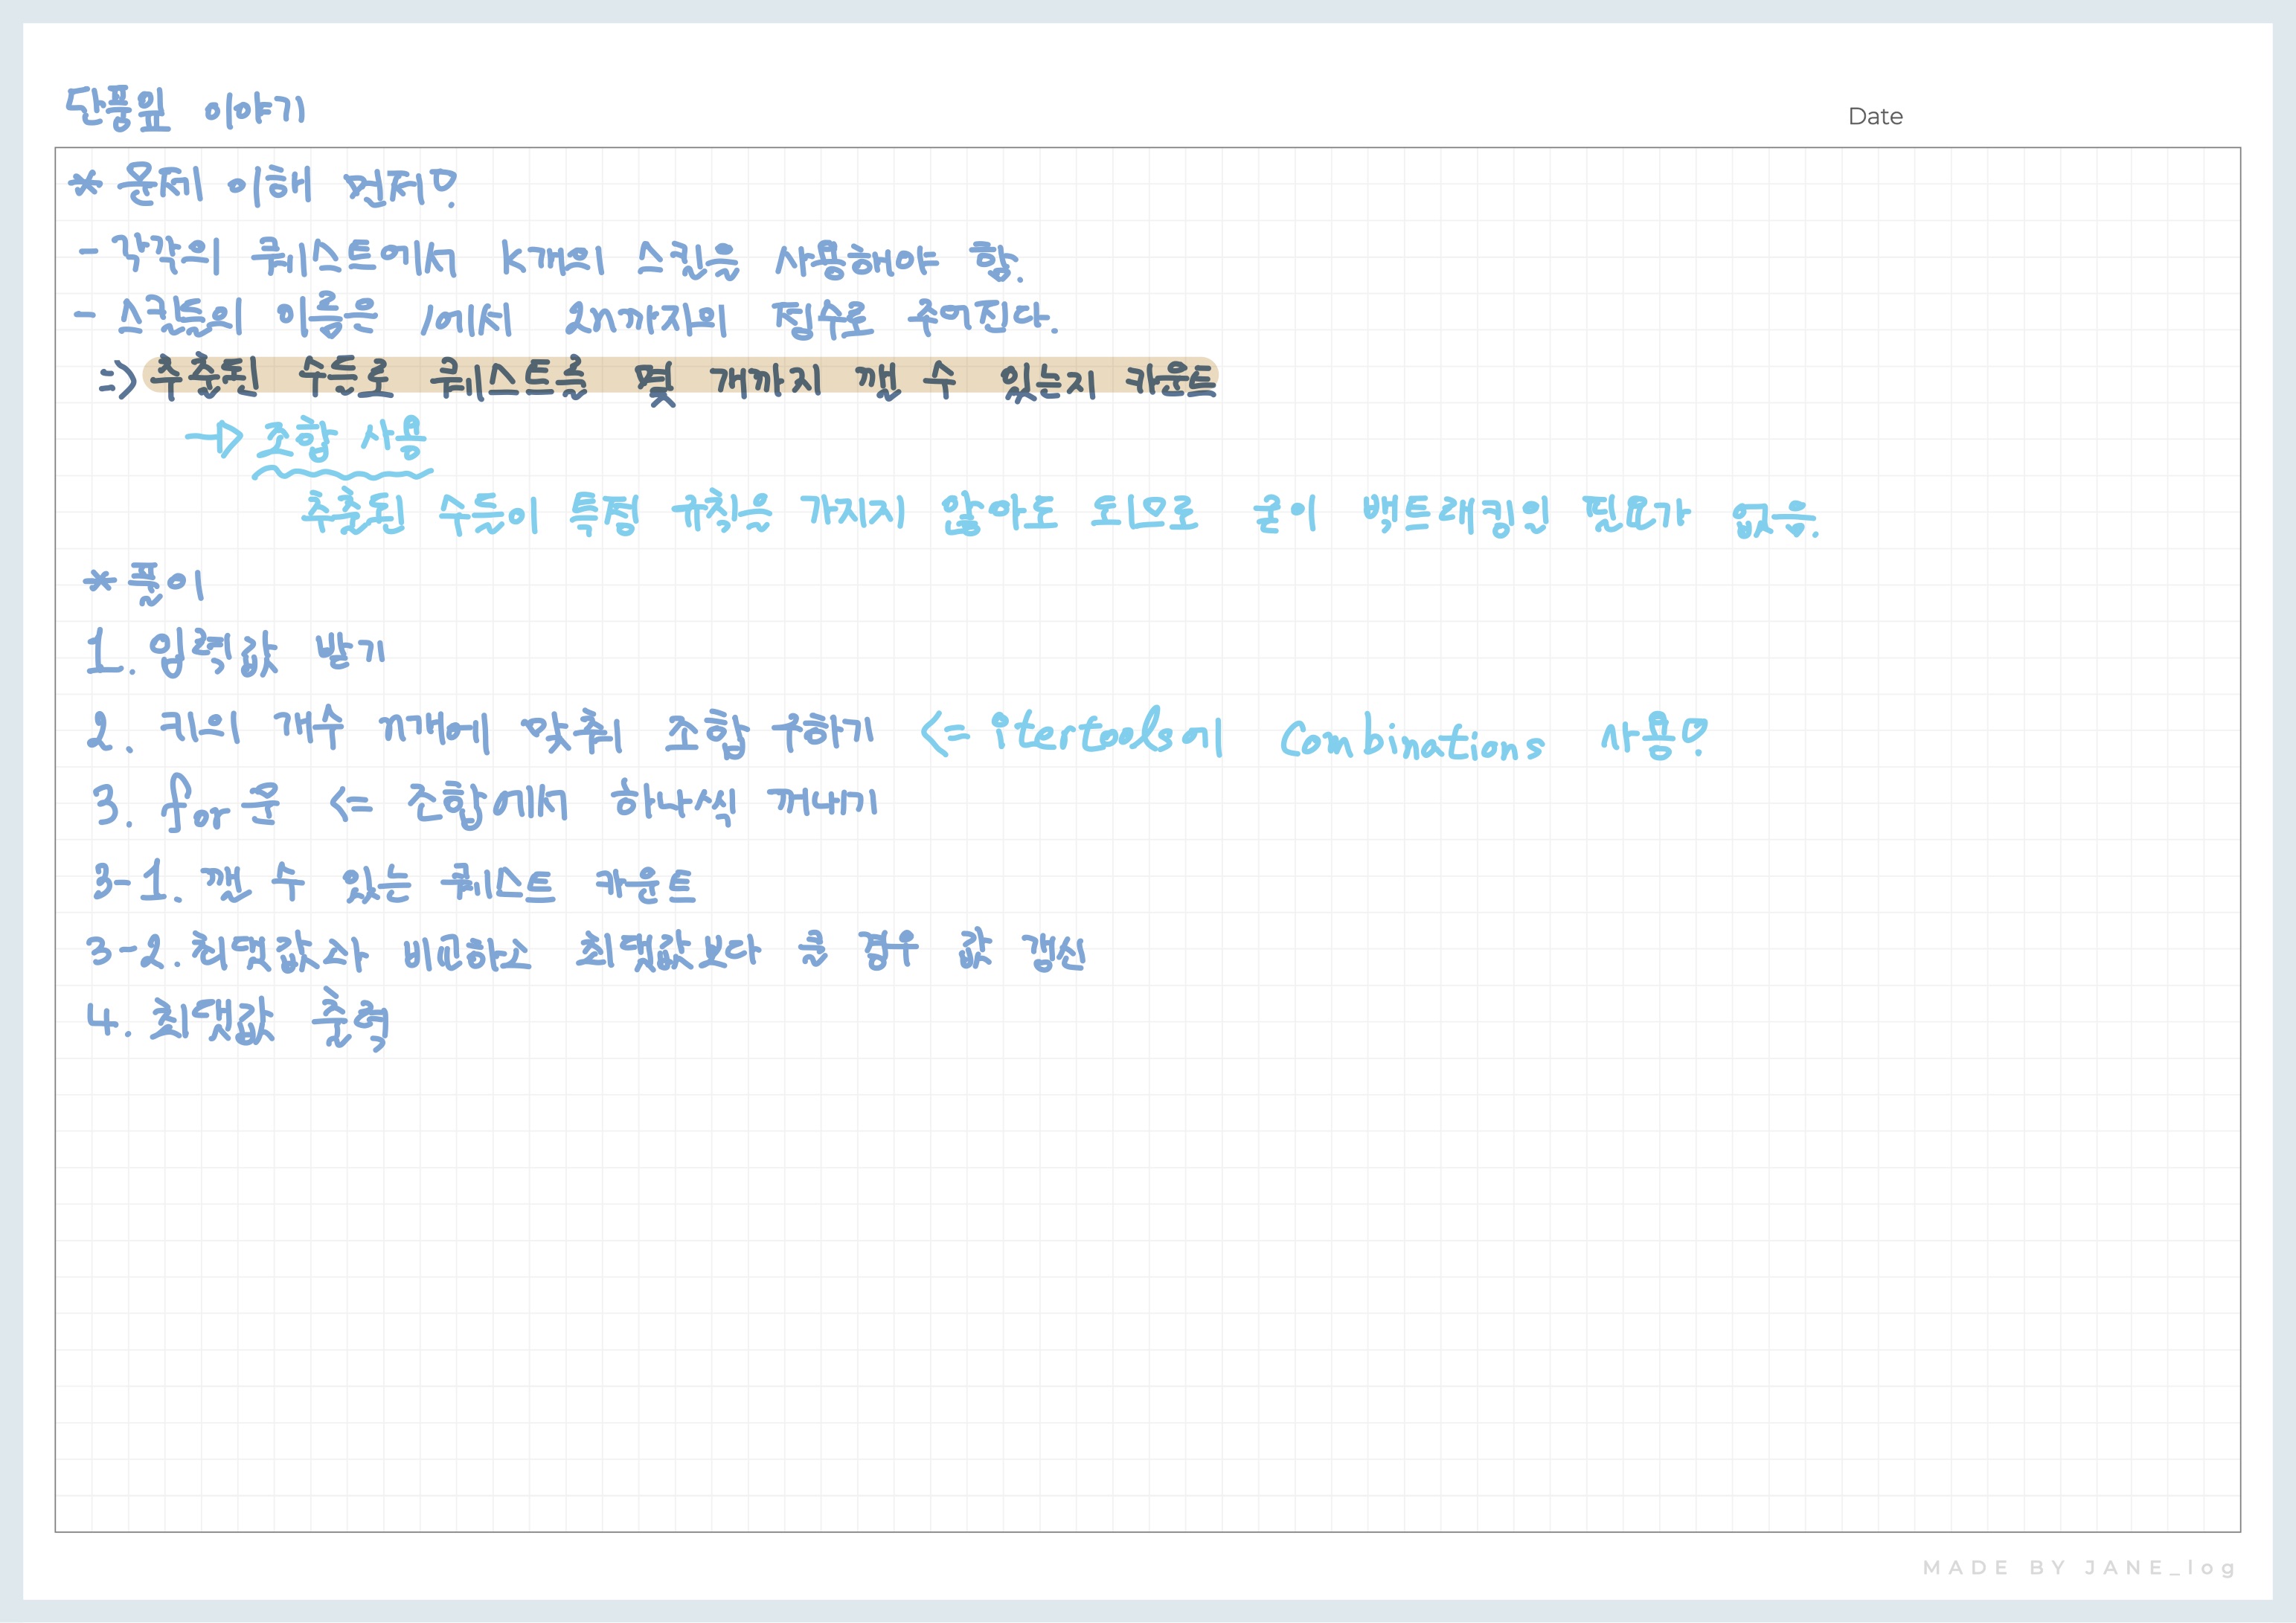 단풍잎 이야기
Date
* 문제 이해 먼저!
- 각각의 퀘스트에서 K개의 스킬을 사용해야 함.
- 스킬들의 이름은 1에서 2n까지의 점수로 주어진다.
=> 추출된 수들로 퀘스트를 몇 개까지 깰 수 있는지 카운트
→ 조합 사용
추출된 수들이 특정 규칙을 가지지 않아도 되므로 굳이 백트래킹의 필요가 없음.
* 풀이
1. 입력값 받기
2. 키의 개수 n개에 맞춰 조합 구하기 <= itertools의 combinations 사용!
3. for문 <= 조합에서 하나씩 꺼내기
3-1. 깰 수 있는 퀘스트 카운트
3-2. 최댓값과 비교하고 최댓값보다 클 경우 값 갱신
4. 최댓값 출력
MADE BY JANE_log